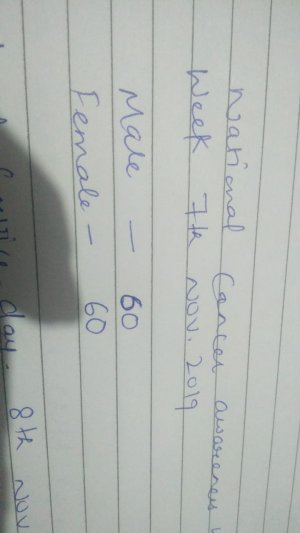 National Cancer awareness
Week 7th Nov. 2019
Male — 60
Female — 60
day. 8th Nov